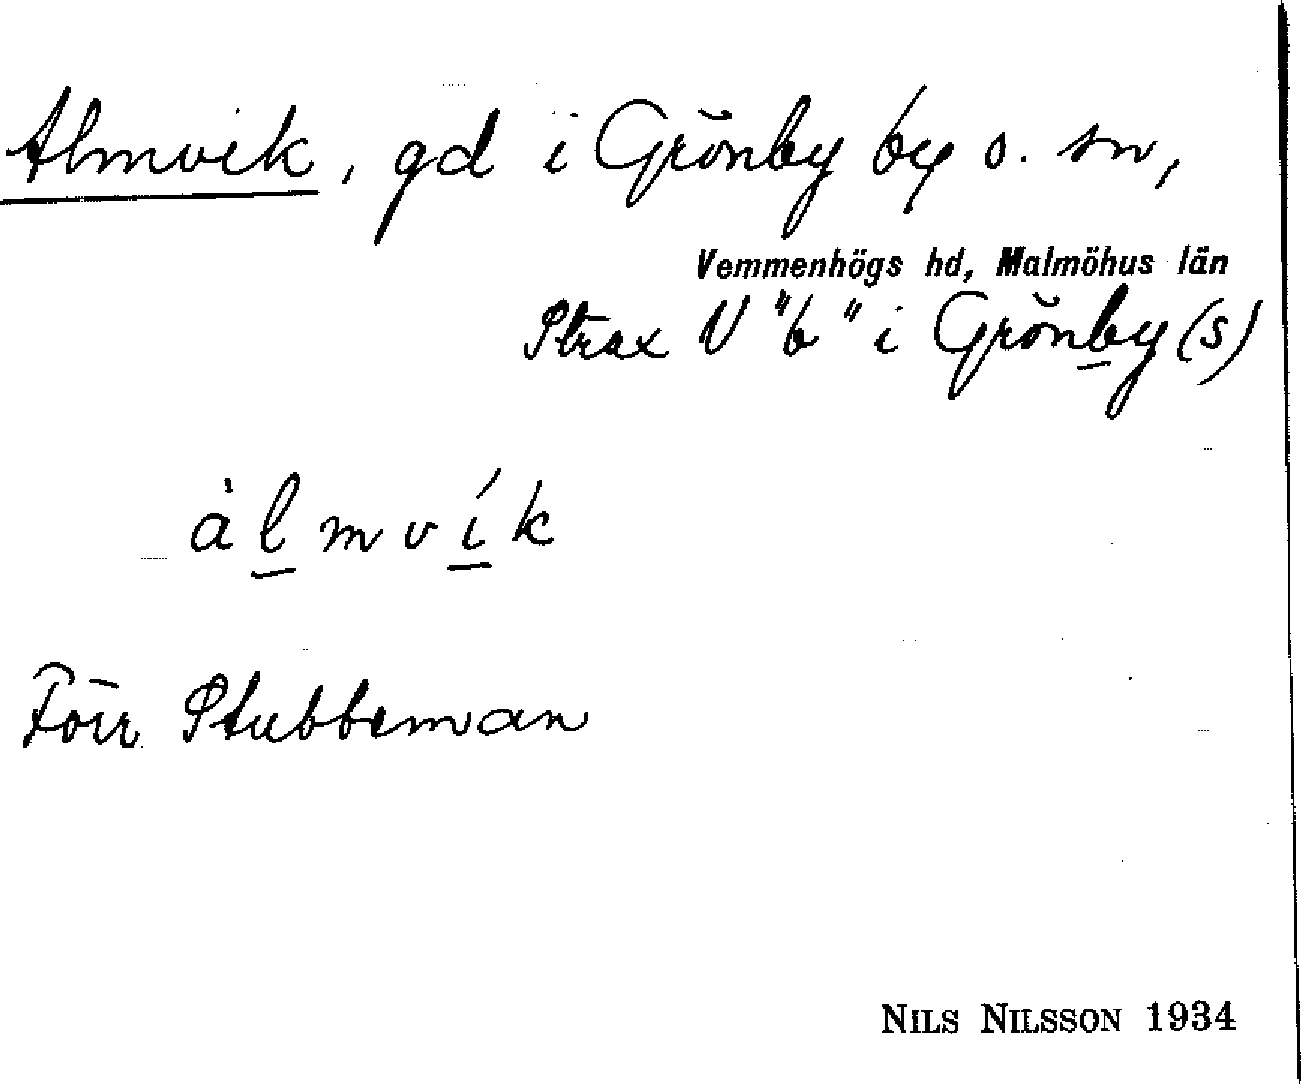 Almvik, gd i Grönby by o. sn,
Vemmenhögs hd, Malmöhus län
Strax V "b" i Grönby (s)
àlmvík
Förr Stubbeman
NILS NILSSON 1934